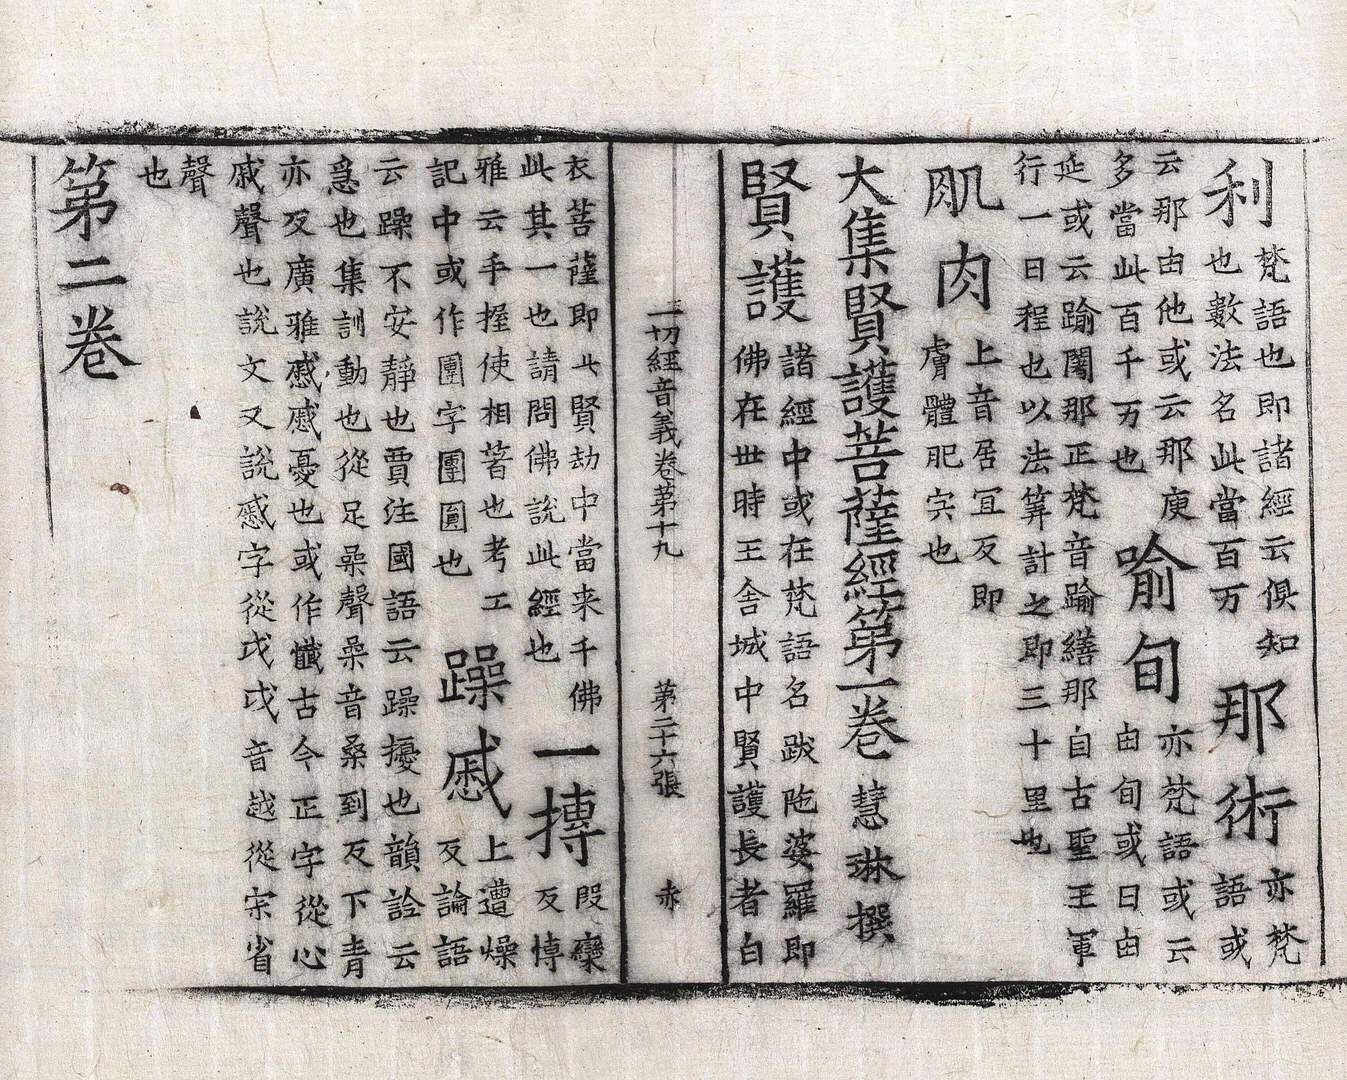 利梵語也即諸經云俱知
也數法名此當百万
那術亦梵
語或
云那由他或云那庾
多當此百千万也
喻旬亦梵語或云
由旬或曰由
延或云踰闍那正梵音踰繕那自古聖王軍
行一日程也以法筭計之即三十里也
肌肉上音居冝反即
膚體肥宍也
大集賢護菩薩經第一卷 慧琳撰
賢護諸經中或在梵語名跋陁婆羅即
佛在世時王舍城中賢護長者白
一切經音義卷第十九 第二十六張 赤
衣菩薩即此賢劫中當来千佛
此其一也請問佛說此經也
一摶段欒
反博
雅云手握使相著也考工
記中或作團字團圓也
躁慼上遭燥
反論語
云躁不安靜也賈注國語云躁擾也韻詮云
爲也集訓動也從足喿聲喿音桑到反下青
亦反廣雅慼慼憂也或作懺古今正字從心
戚聲也說文又說慼字從戉戉音越從宋省
聲
也
第二卷